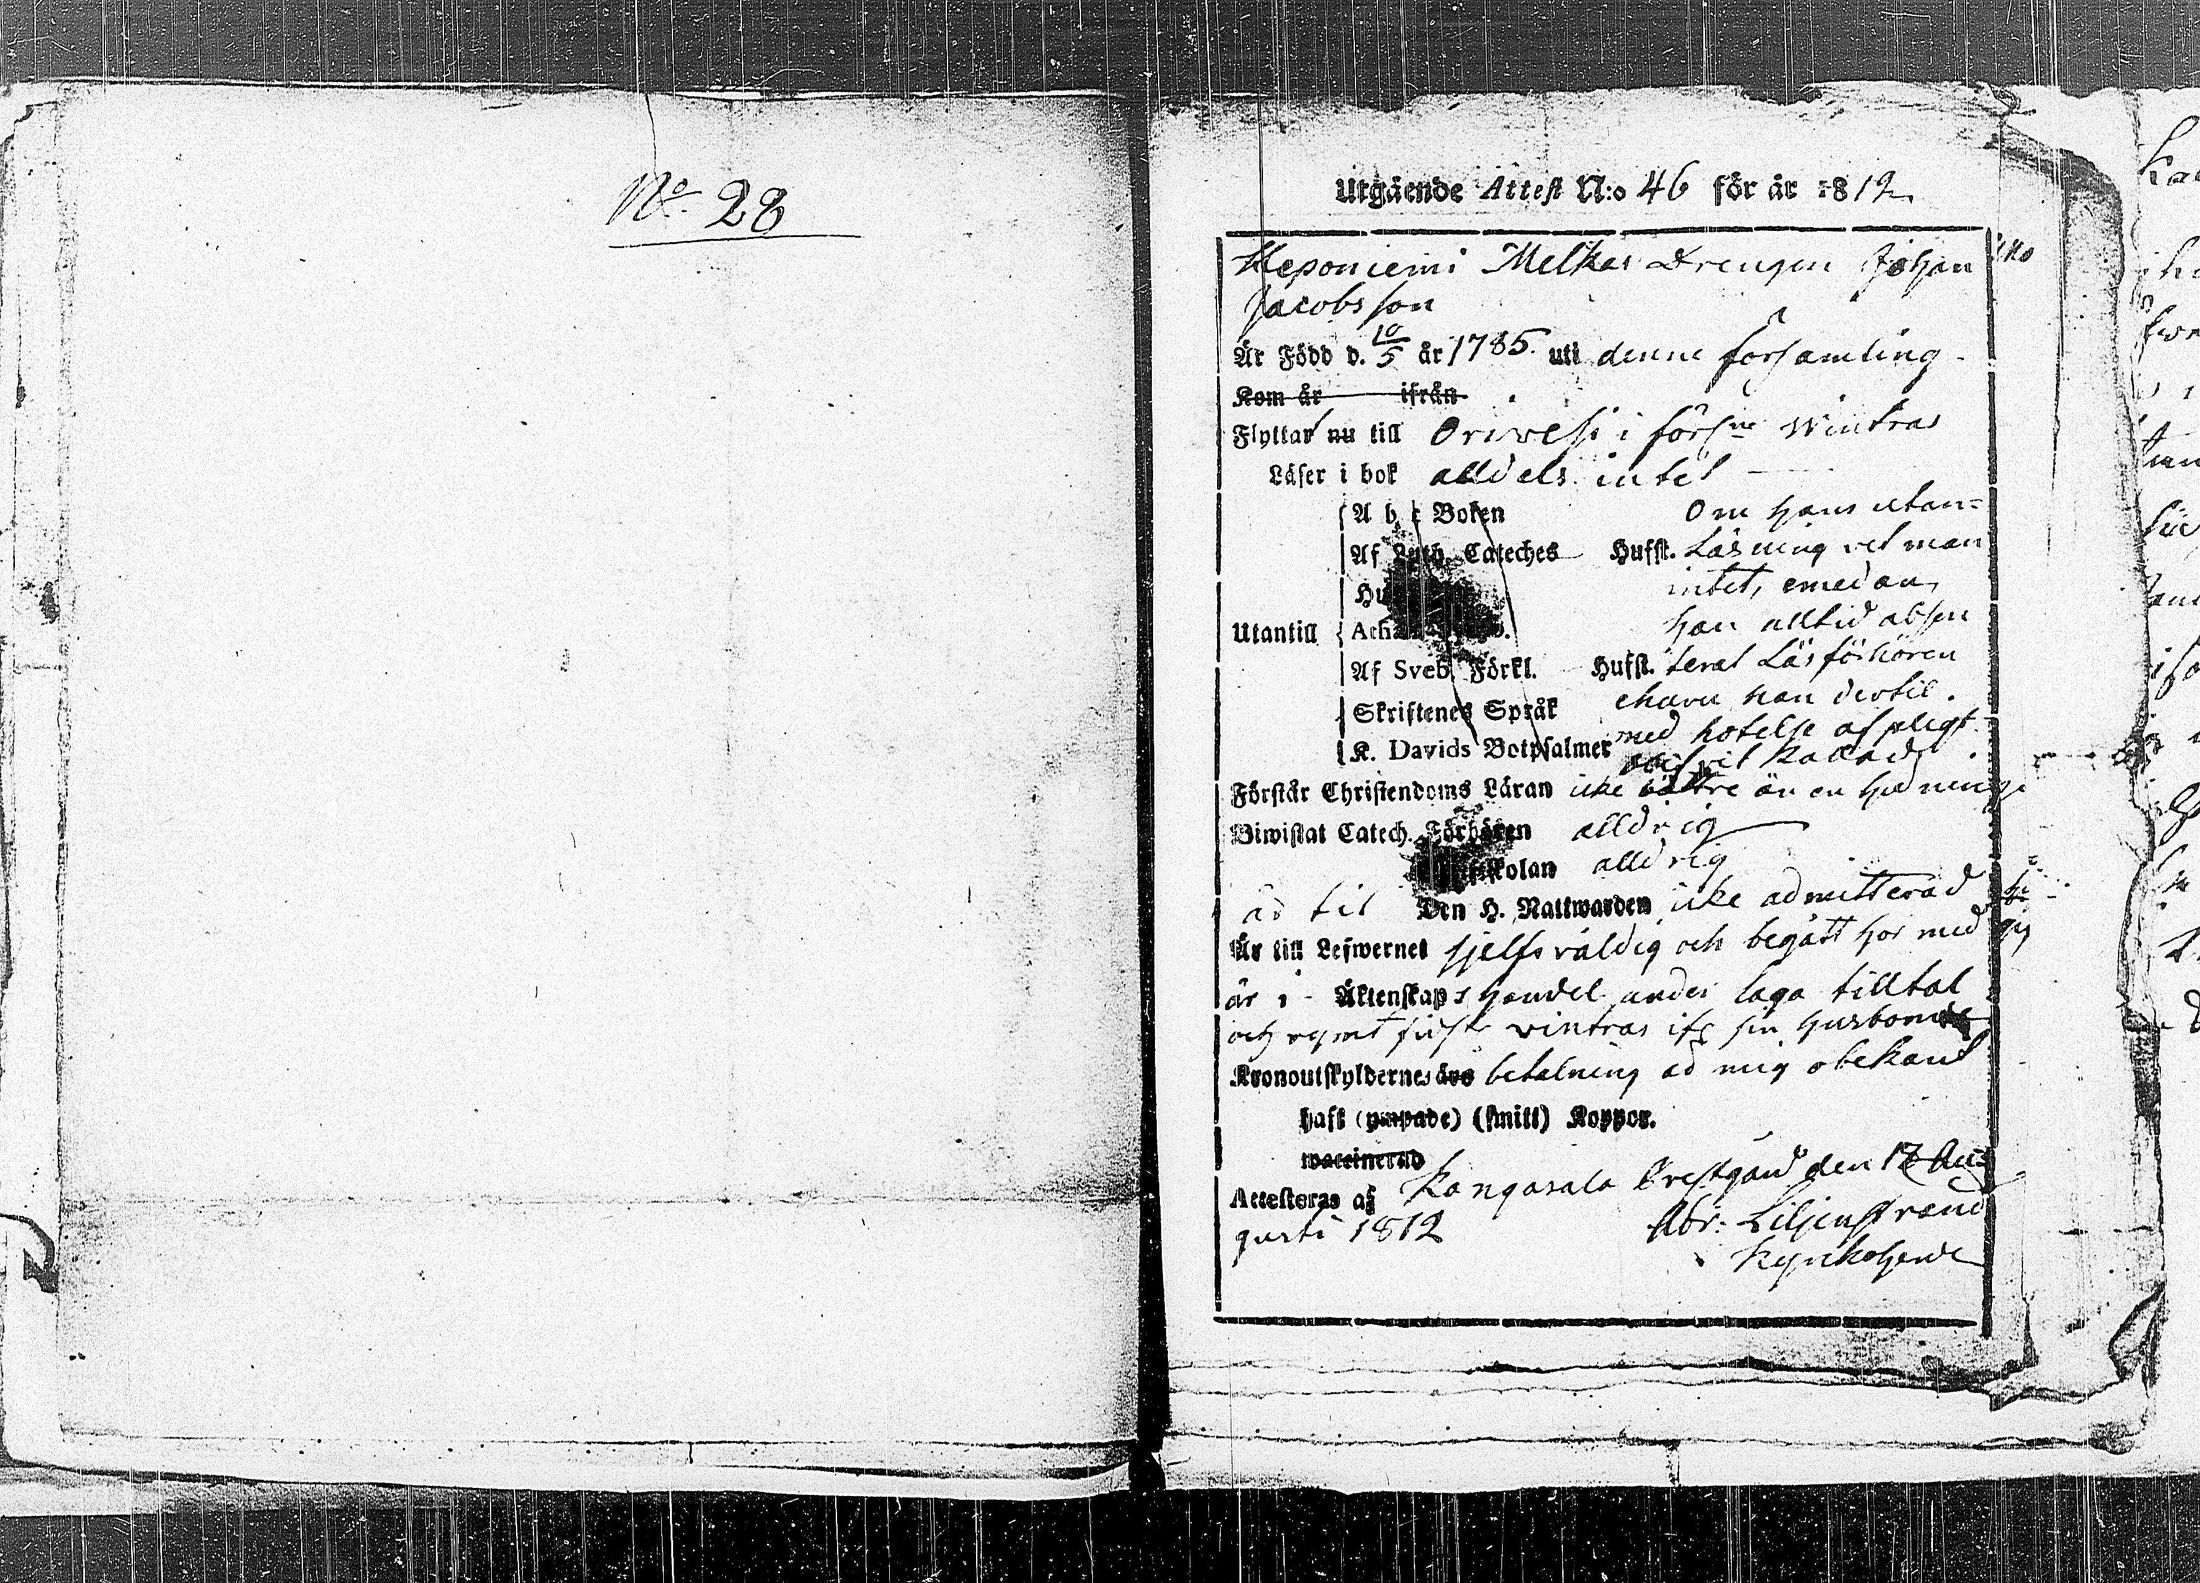 No 28
Utgående Attest N:o 46 för år 1812
Heponiemi Melkas Drengen Johan
Jacobsson
Är Född d. 10/5 år 1785. uti denne församling.
Kom år ifrån
Flyttar nu till Orivesi i förs:ne Wintras
Läser i bok alldels intet
A b c Boken Om hans utan=
Af Luth. Cateches Hufst. Läsning vet man
intet, emedan
Utantill han alltid absen
Af Sveb. Förkl. Hufst. terat Läsförhören
Skriftenes Språk ehuru han dertil
K. Davids Botpsalmer med hotelse af pligt
blifvit kallad
Förstår Christendoms Läran icke bättre än en hedning.
Biwistat Catech. Förhören alldrig
skolan alldrig
är til Den H. Nattwarden icke admitterad
Är till Lefwernet sjelfsvåldig och begått hor med
är i Äktenskaps handel under laga tilltal
och rymt sidstl. vintras ifr. sin husbonde
Kronoutskyldernes års betalning är mig obekant
haft (ympade) (smitt) Koppor.
waccinerad
Attesteras af Kangasala Prestgård den 17 Au
gusti 1812 Abr: Liljenstrand
Kyrkoherde